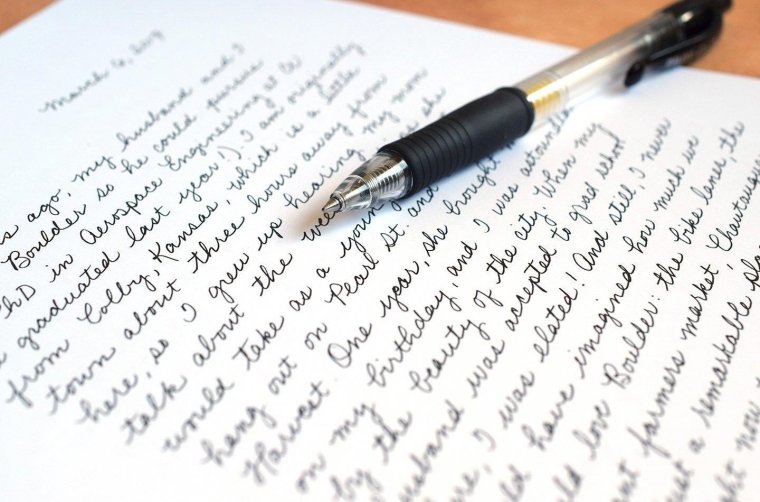 March 6, 2019
ago, my husband and I
Boulder so he could pursue
PhD in Aerospace Engineering at CU
graduated last year!) I am originally
from Colby, Kansas, which is a little
town about three hours away from
here, so I grew up hearing my mom
talk about the
would take as a young
hang out on Pearl St. and
Harvest. One year, she brought
on my birthday, and I was astounded
by the beauty of the city. When my
husband was accepted to grad school
I was elated! And still, I never
have imagined how much we
love Boulder: the bike lanes, the
farmers market, Chautauqua
a remarkable
now